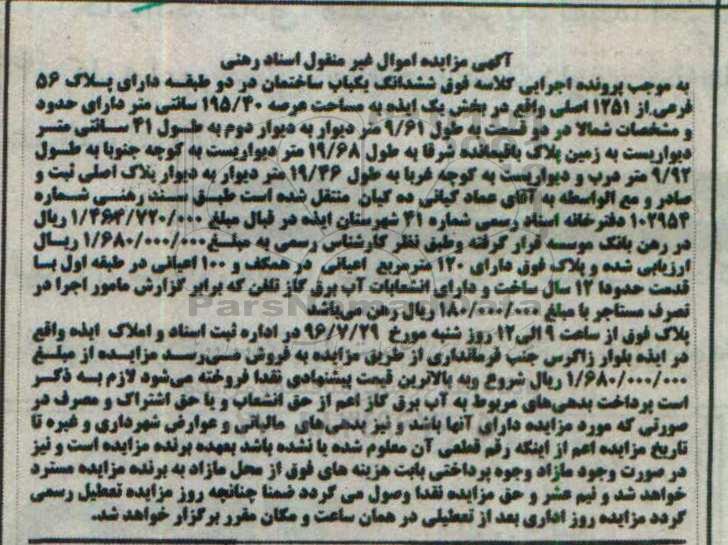 آگهی مزایده اموال غیر منقول اسناد رهنی
به موجب پرونده اجرایی کلاسه فوق ششدانگ یکباب ساختمان در دو طبقه دارای پلاک ۵۶
فرعی از ۱۲۵۱ اصلی واقع در بخش یک ایذه به مساحت عرصه ۱۹۵/۴۰ سانتی متر دارای حدود
و مشخصات شمالا در دو قسمت به طول ۹/۶۱ متر دیوار به دیوار دوم به طول ۴۱ سانتی متر
دیواریست به زمین پلاک باقیمانده شرقا به طول ۱۹/۶۸ متر دیواریست به کوچه جنوبا به طول
۹/۹۲ متر درب و دیواریست به کوچه غربا به طول ۱۹/۴۶ متر دیوار به دیوار پلاک اصلی ثبت و
صادر و مع الواسطه به آقای عماد کیانی ده کیان منتقل شده است طبق سند رهنی شماره
۱۰۲۹۵۴ دفترخانه اسناد رسمی شماره ۴۱ شهرستان ایذه در قبال مبلغ ۱/۴۶۴/۷۲۰/۰۰۰ ریال
در رهن بانک موسسه قرار گرفته وطبق نظر کارشناس رسمی به مبلغ ۱/۶۸۰/۰۰۰/۰۰۰ ریال
ارزیابی شده و پلاک فوق دارای ۱۲۰ مترمربع اعیانی در همکف و ۱۰۰ اعیانی در طبقه اول با
قدمت حدودا ۱۲ سال ساخت و دارای انشعابات آب برق گاز تلفن که برابر گزارش مامور اجرا در
تصرف مستاجر با مبلغ ۱۸۰/۰۰۰/۰۰۰ ریال رهن می‌باشد
ParsNamadData
پلاک فوق از ساعت ۹ الی ۱۲ روز شنبه مورخ ۹۶/۷/۲۹ در اداره ثبت اسناد و املاک ایذه واقع
در ایذه بلوار زاگرس جنب فرمانداری از طریق مزایده به فروش می‌رسد مزایده از مبلغ
۱/۶۸۰/۰۰۰/۰۰۰ ریال شروع وبه بالاترین قیمت پیشنهادی نقدا فروخته می‌شود لازم به ذکر
است پرداخت بدهی‌های مربوط به آب برق گاز اعم از حق انشعاب و یا حق اشتراک و مصرف در
صورتی که مورد مزایده دارای آنها باشد و نیز بدهی‌های مالیاتی و عوارض شهرداری و غیره تا
تاریخ مزایده اعم از اینکه رقم قطعی آن معلوم شده یا نشده باشد بعهده برنده مزایده است و نیز
در صورت وجود مازاد وجوه پرداختی بابت هزینه های فوق از محل مازاد به برنده مزایده مسترد
خواهد شد و نیم عشر و حق مزایده نقدا وصول می گردد ضمنا چنانچه روز مزایده تعطیل رسمی
گردد مزایده روز اداری بعد از تعطیلی در همان ساعت و مکان مقرر برگزار خواهد شد.